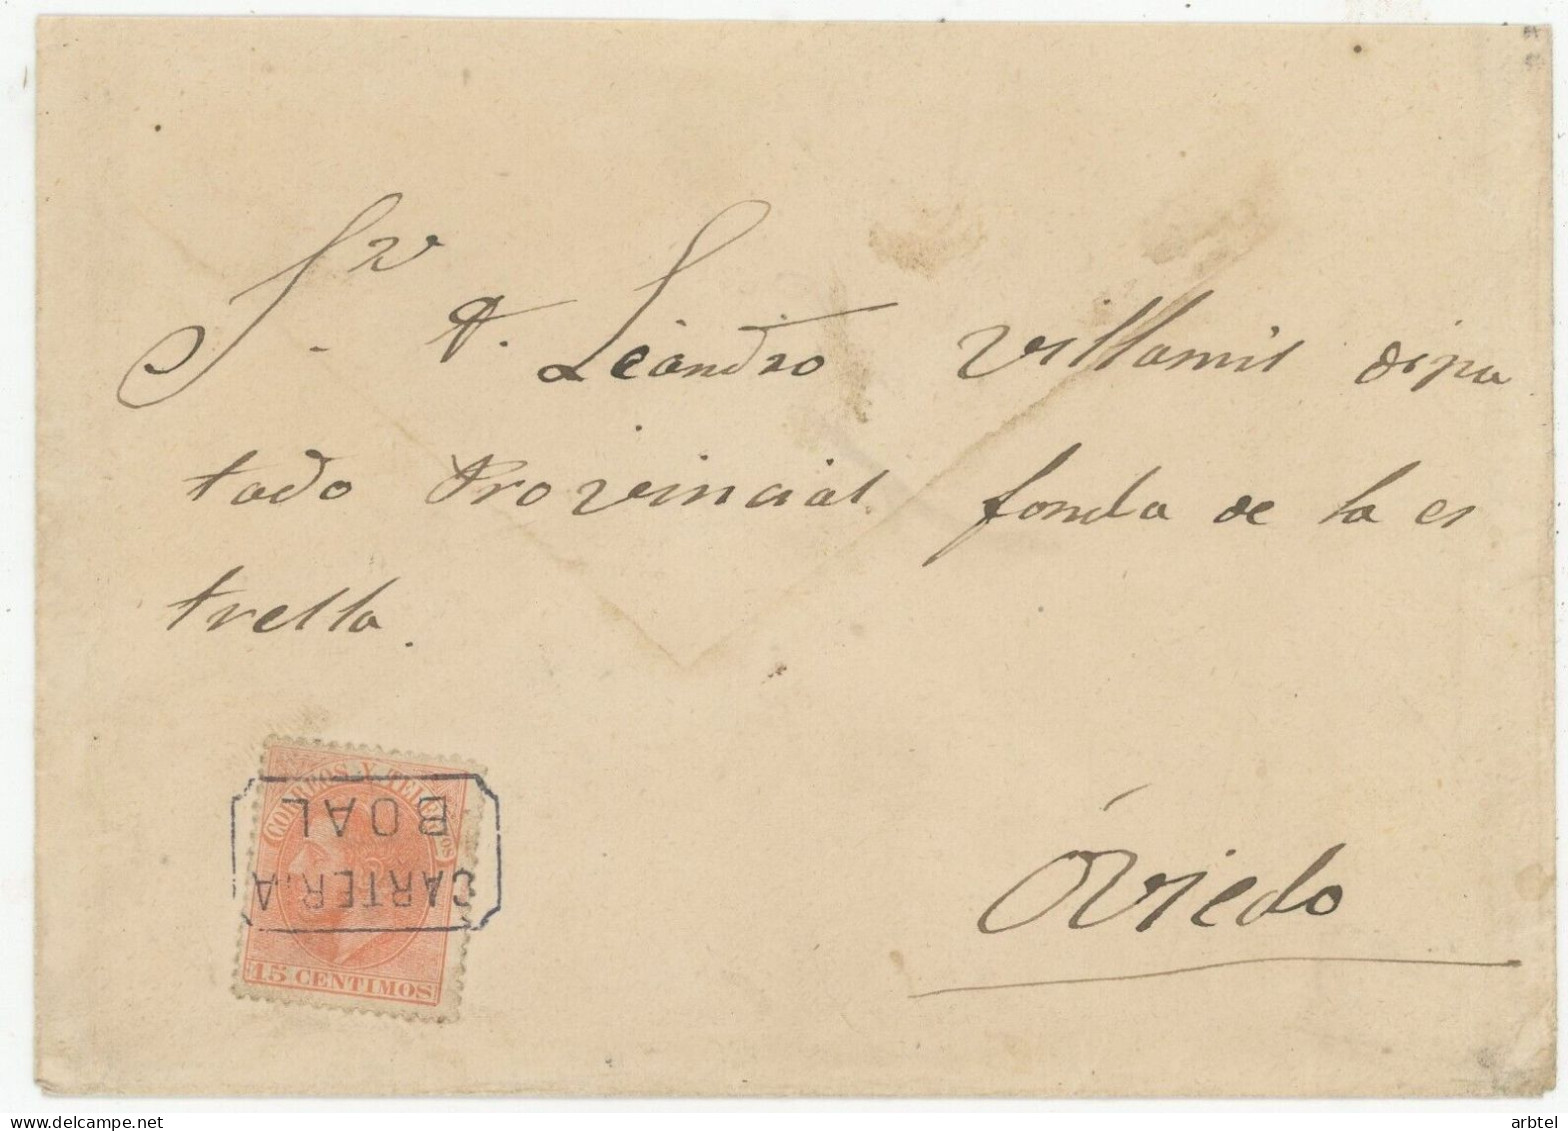 Sr D. Leandro Villamil dipu
tado Provincial fonda de la es
trella.
CORREOS Y TELEGFOS
BOAL
CARTER.A
15 CENTIMOS
Oviedo
www.delcampe.net
arbtel